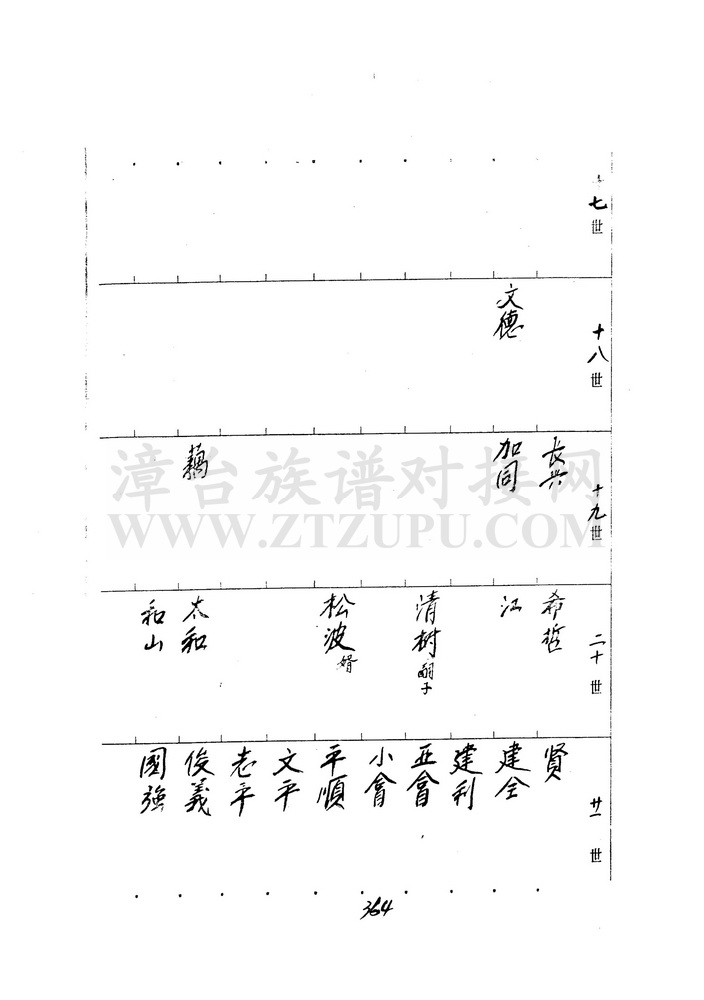 十七世
十八世
文德
十九世
长兴
加同
藕
二十世
希哲
江
清树 嗣子
松波 婿
太和
和山
廿一世
贤
建全
建利
亚會
小會
平順
文平
志平
俊義
國強
364
漳台族谱对接网
WWW.ZTZUPU.COM